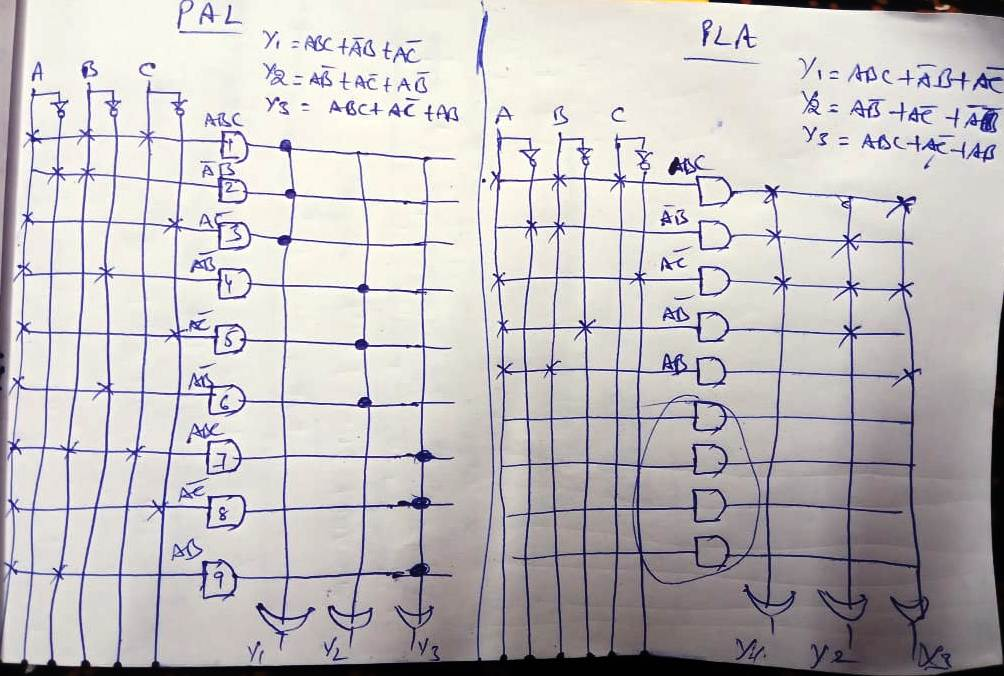 PAL
Y₁ = ABC + A̅B + AC̅
Y₂ = AB̅ + AC̅ + AB̅
Y₃ = ABC + AC̅ + AB
A B C
ABC
1
A̅B
2
AC̅
3
AB̅
4
AC̅
5
AB̅
6
ABC
7
AC̅
8
AB
9
Y₁ Y₂ Y₃
PLA
Y₁ = ABC + A̅B + AC̅
Y₂ = AB̅ + AC̅ + A̅B
Y₃ = ABC + AC̅ + AB
A B C
ABC
A̅B
AC̅
AB̅
AB
Y₁ Y₂ Y₃